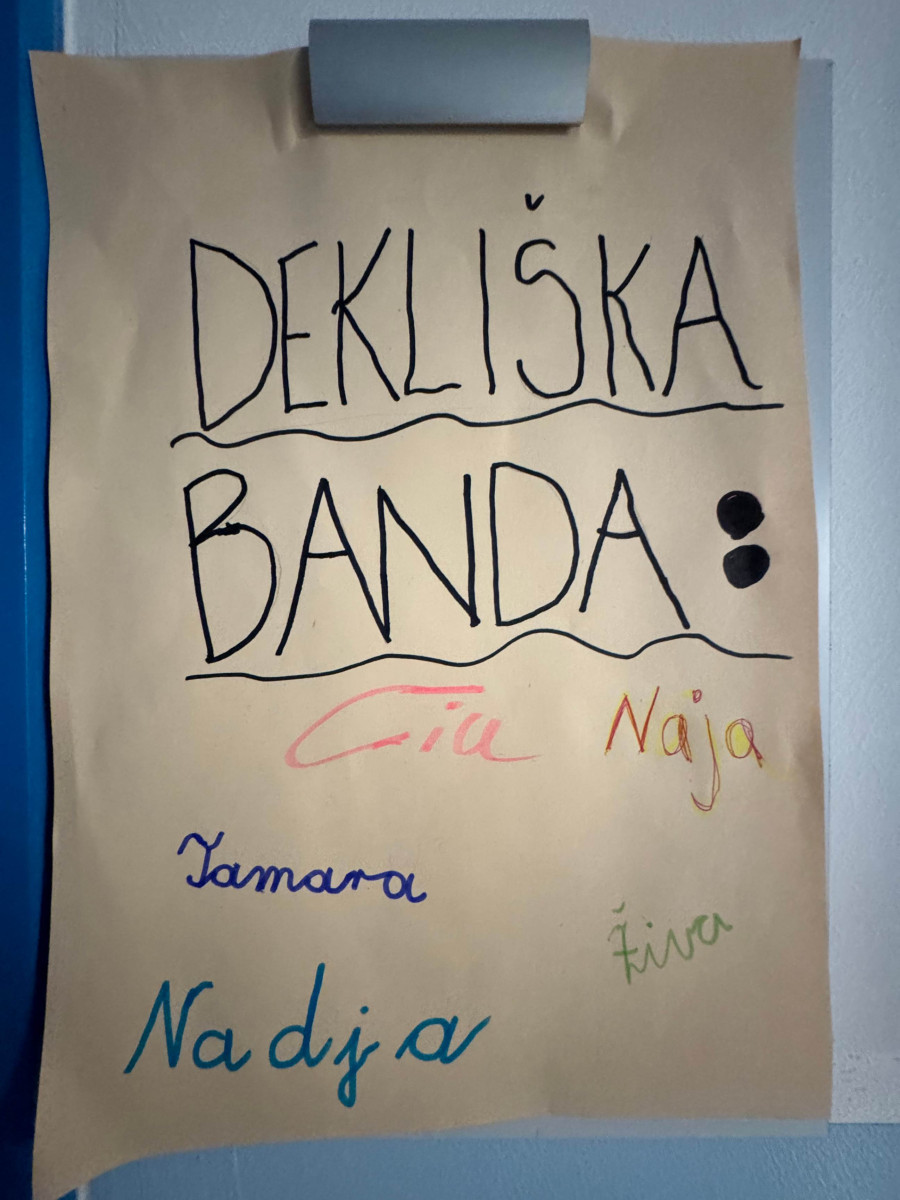 DEKLIŠKA
BANDA:
Cia Naja
Tamara
Živa
Nadja